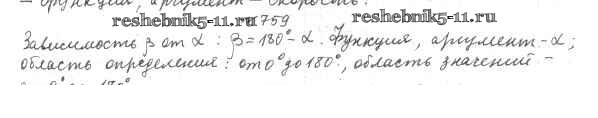 — функция, аргумент — скорость.
reshebnik5-11.ru 759 reshebnik5-11.ru
Зависимость β от α : β = 180° - α. Функция, аргумент - α ;
область определения : от 0° до 180°, область значений -
0° 180°